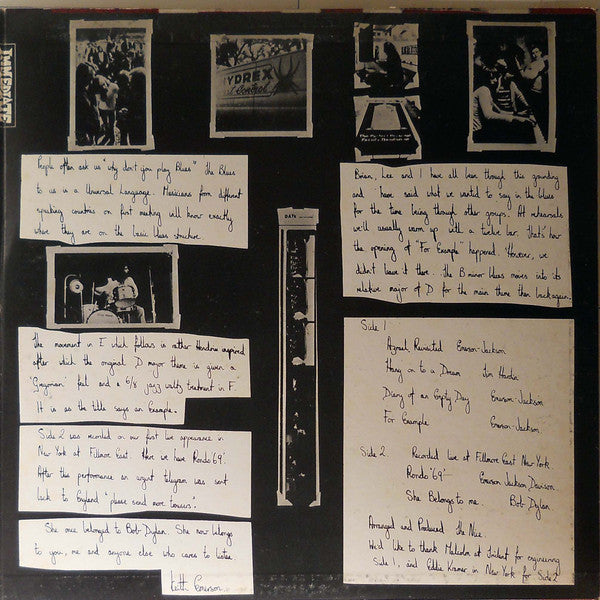 IMMEDIATE
YDREX
DATE
People often ask us "why don't you play Blues" The Blues
to us is a Universal Language. Musicians from different
speaking countries on first meeting will know exactly
where they are on the basic blues structure.
Brian, Lee and I have all been through this grounding
and have said what we wanted to say in the blues
for the time being through other groups. At rehearsals
we'll usually warm up with a twelve bar. That's how
the opening of "For Example" happened. However, we
didn't leave it there - the B minor blues moves into its
relative major of D for the main theme then back again.
The movement in E which follows is rather Hendrix inspired
after which the original D major theme is given a
"Grayman" feel and a 6/8 jazz waltz treatment in F.
It is as the title says an Example.
Side 2 was recorded on our first live appearance in
New York at Fillmore East. Here we have Rondo '69'.
After this performance an urgent telegram was sent
back to England "please send more tenners".
She once belonged to Bob Dylan. She now belongs
to you, me and anyone else who cares to listen.
Keith Emerson.
Side 1
Azrael Revisited Emerson-Jackson
Hang on to a Dream Tim Hardin
Diary of an Empty Day Emerson-Jackson
For Example Emerson-Jackson.
Side 2. Recorded live at Fillmore East New York
Rondo '69'- Emerson Jackson Davison
She Belongs to me. Bob Dylan.
Arranged and Produced The Nice.
We'd like to thank Malcolm at Trident for engineering
Side 1, and Eddie Kramer in New York for Side 2